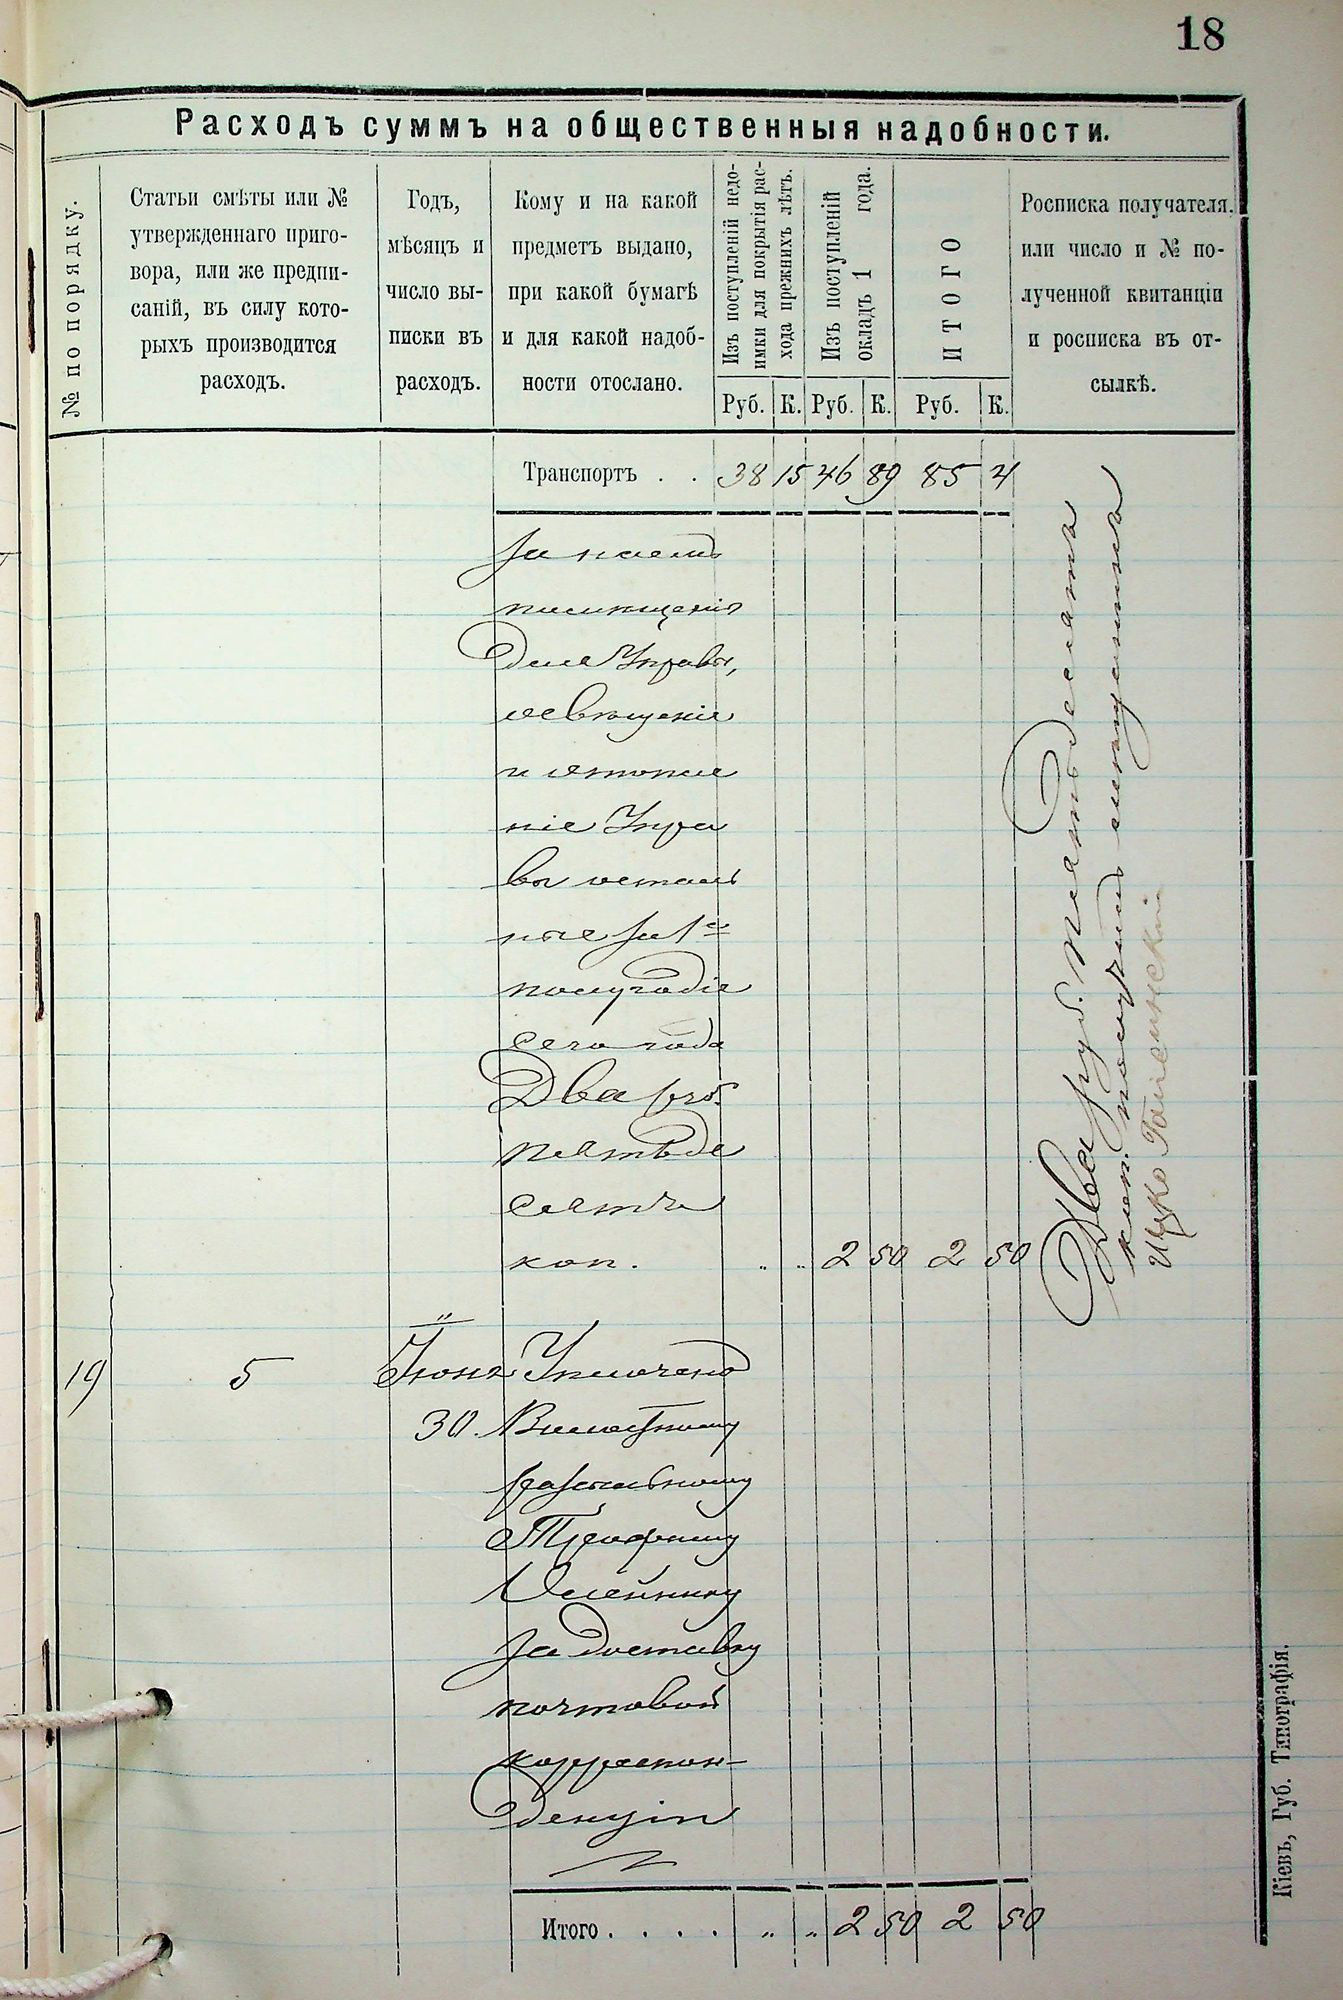 18
Расходъ суммъ на общественныя надобности.
№ по порядку.
Статьи смѣты или №
утвержденнаго приго-
вора, или же предпи-
саній, въ силу кото-
рыхъ производится
расходъ.
Годъ,
мѣсяцъ и
число вы-
писки въ
расходъ.
Кому и на какой
предметъ выдано,
при какой бумагѣ
и для какой надоб-
ности отослано.
Изъ поступленій недо-
имки для покрытія рас-
хода прежнихъ лѣтъ.
Изъ поступленій
окладъ 1 года.
ИТОГО
Росписка получателя,
или число и № по-
лученной квитанціи
и росписка въ от-
сылкѣ.
Руб. К. Руб. К. Руб. К.
Транспортъ . . 38 15 46 89 85 4
За наемъ
помѣщенія
для Управы,
освѣщеніе
и отопле
ніе Упра
вы осталь
ные за 1е
полугодіе
сего года
Два руб.
пятьде
сятъ
коп. „ „ 2 50 2 50
Два руб. пятьдесятъ
коп. получилъ
Ицко
19 5 Іюня Уплочено
30.
разсыльному
Трофиму
Олейнику
за доставку
почтовой
корреспон-
денціи
Итого . . . . „ „ 2 50 2 50
Кіевъ, Губ. Типографія.